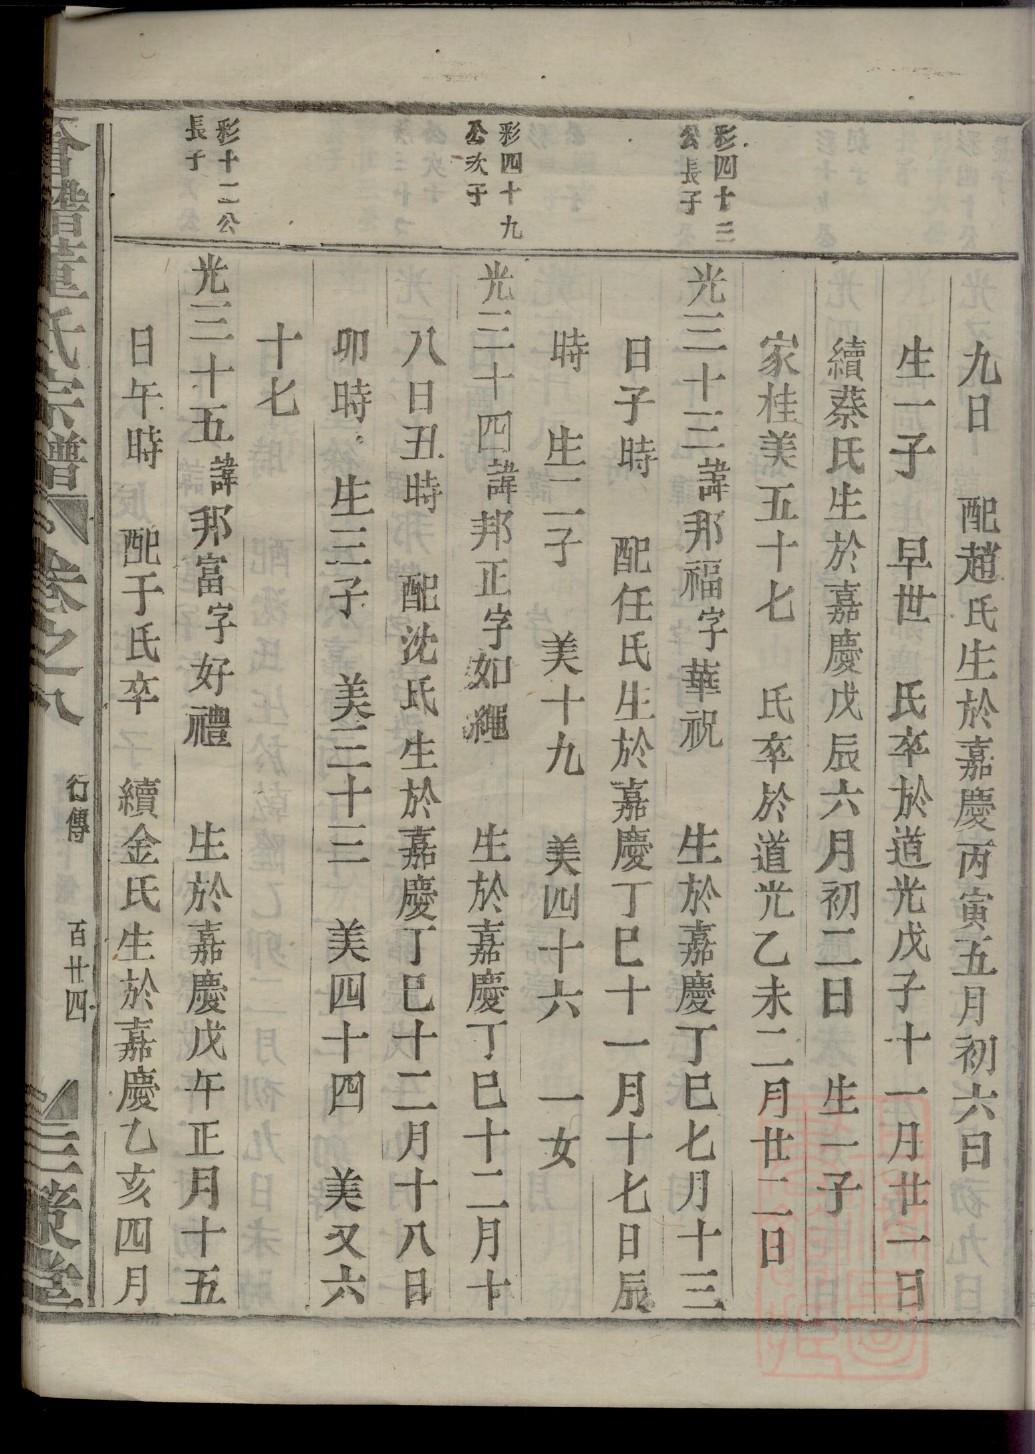 九日 配趙氏生於嘉慶丙寅五月初六日
生一子 早世 氏卒於道光戊子十一月廿一日
續蔡氏生於嘉慶戊辰六月初二日 生一子
家桂美五十七 氏卒於道光乙未二月廿二日
彩四十三
公長子
光三十三諱邦福字華祝 生於嘉慶丁巳七月十三
日子時 配任氏生於嘉慶丁巳十一月十七日辰
時 生二子 美十九 美四十六 一女
彩四十九
公次子
光三十四諱邦正字如繩 生於嘉慶丁巳十二月十
八日丑時 配沈氏生於嘉慶丁巳十二月十八日
卯時 生三子 美三十三 美四十四 美又六
十七
彩十二公
長子
光三十五諱邦富字好禮 生於嘉慶戊午正月十五
日午時 配于氏卒 續金氏生於嘉慶乙亥四月
董氏宗譜 卷之八 行傳 百廿四 三策堂